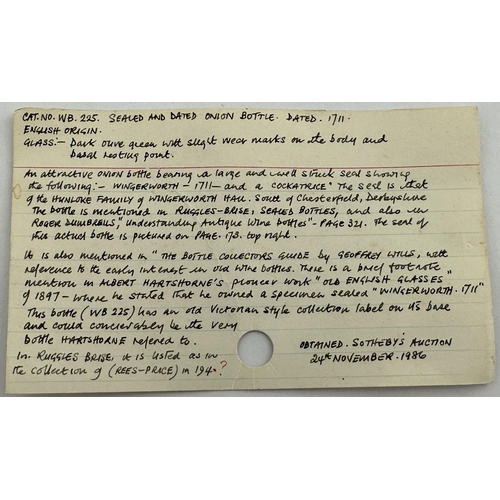 CAT. NO. WB. 225. SEALED AND DATED ONION BOTTLE. DATED. 1711.
ENGLISH ORIGIN.
GLASS:- Dark olive green with slight wear marks on the body and
basal resting point.
An attractive ONION bottle bearing a large and well struck seal showing
the following:- WINGERWORTH - 1711 - and a COCKATRICE. The seal is that
of the HUNLOKE FAMILY of WINGERWORTH HALL. South of Chesterfield, Derbyshire
The bottle is mentioned in RUGGLES-BRISE; SEALED BOTTLES, and also in
ROGER DUMBRELLS, "Understanding Antique Wine bottles" - PAGE 321. The seal of
this actual bottle is pictured on PAGE. 173. top right.
It is also mentioned in "THE BOTTLE COLLECTORS GUIDE by GEOFFREY WILLS, with
reference to the early interest in old wine bottles. There is a brief footnote
mention in ALBERT HARTSHORNE'S pioneer work "OLD ENGLISH GLASSES"
of 1897 - where he stated that he owned a specimen sealed "WINGERWORTH. 1711"
This bottle (WB 225) has an old Victorian style collection label on its base
and could conceivably be the very
bottle HARTSHORNE referred to.
OBTAINED. SOTHEBY'S AUCTION
24th NOVEMBER. 1986
In RUGGLES BRISE, it is listed as in
the collection of (REES-PRICE) in 194.?